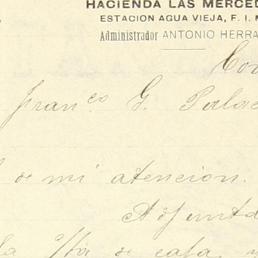 HACIENDA LAS MERCED
ESTACION AGUA VIEJA, F. I. M
Administrador ANTONIO HERRA
Franco G. Palac
de mi atencion.
Adjunta
la Hda de esta, y